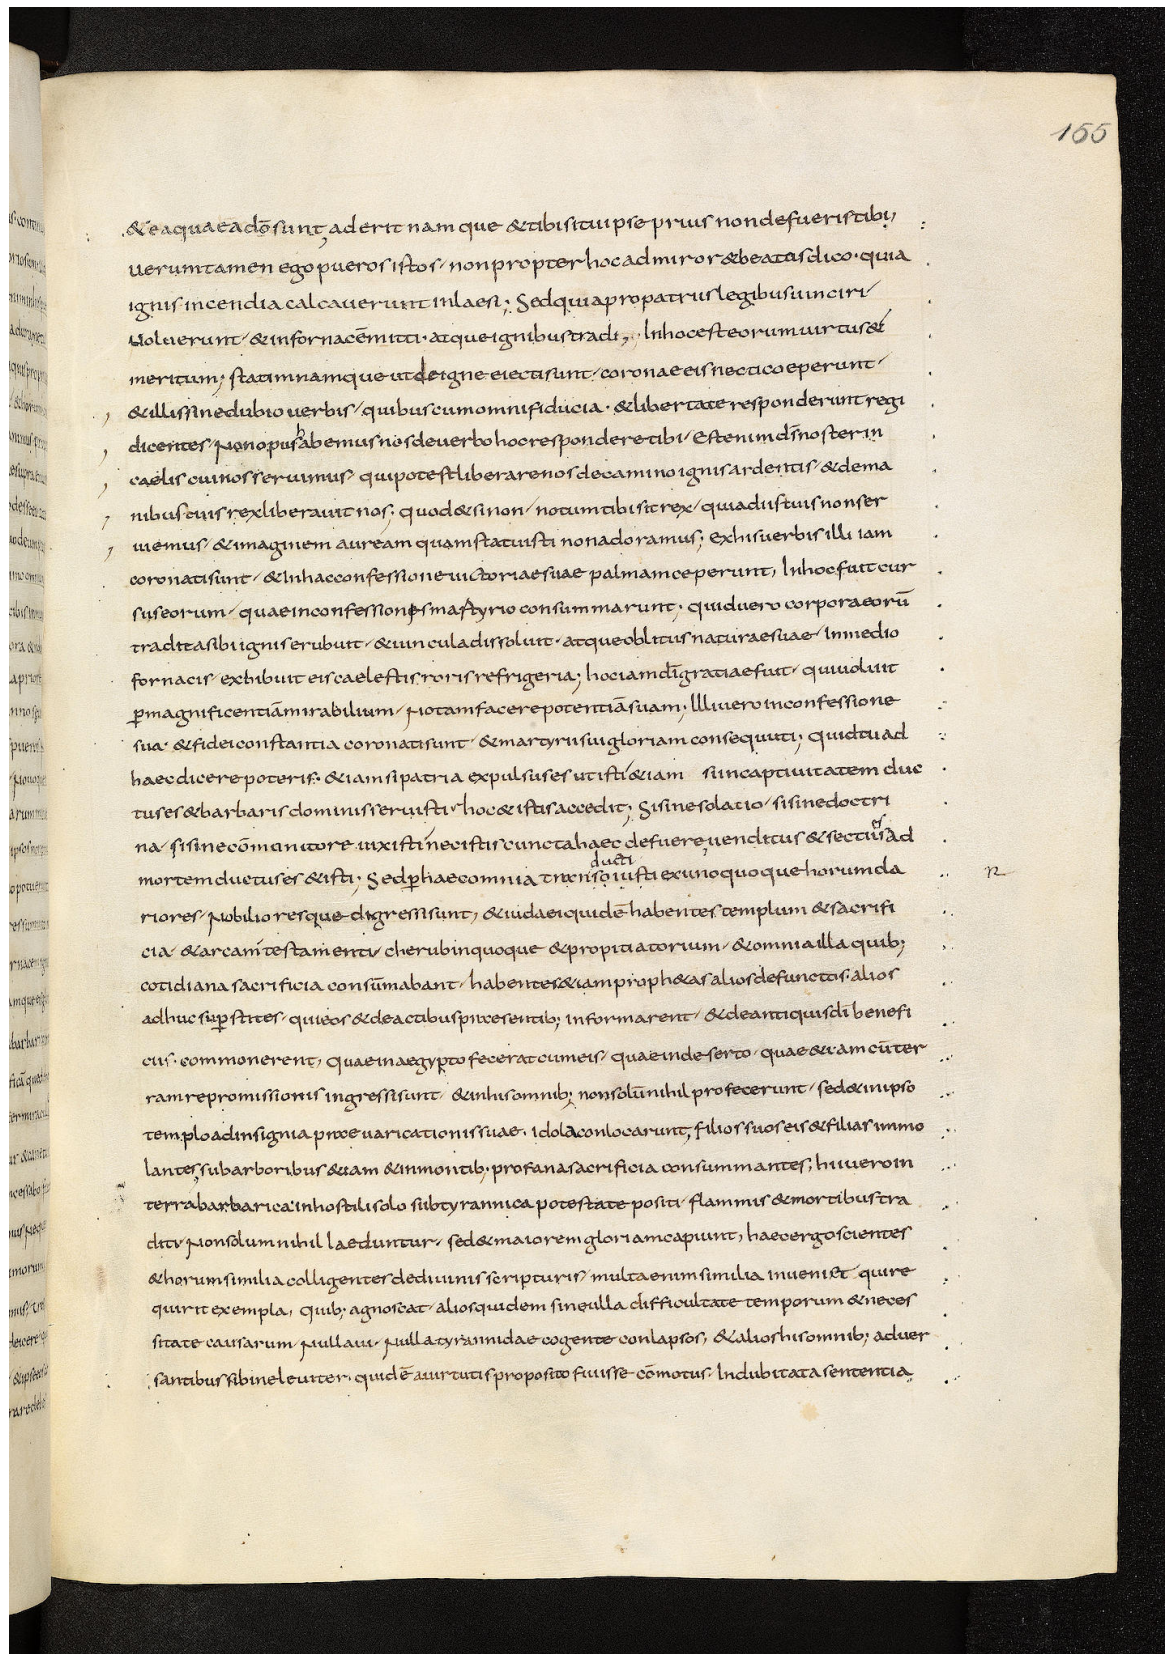 155
& ea quae a dō sunt, aderit nam que & tibi si tu ipse prius non defueris tibi,
uerumtamen ego pueros istos · non propter hoc admiror & beatus dico · quia
ignis incendia calcauerunt inlaesi; Sed quia pro patriis legibus uinciri
uoluerunt · & in fornacē mitti · atque ignibus tradi,. In hoc est eorum uirtus &
meritum; statim namque ut de igne eiecti sunt · coronae eis necti coeperunt ·
& illis sine dubio uerbis · quibus cum omni fiducia · & libertate responderunt regi
dicentes · Non opus habemus nos de uerbo hoc respondere tibi · Est enim dš noster in
caelis cui nos seruimus · qui potest liberare nos de camino ignis ardentis · & de ma
nibus tuis rex liberauit nos; quod & si non · notum tibi sit rex · quia diis tuis non ser
uiemus · & imaginem auream quam statuisti non adoramus; ex his uerbis illi iam
coronati sunt · & In hac confessione uictoriae suae palmam ceperunt, In hoc fuit cur
sus eorum · quae in confessiones martyrio consummarunt; quid uero corpora eorū
tradita sibi ignis erubuit · & uincula dissoluit · atque oblitus naturae suae · In medio
fornacis · exhibuit eis caelestis roris refrigeria; hoc iam dī gratiae fuit · qui uoluit
ꝑ magnificentiā mirabilium · Notam facere potentiā suam; Illi uero in confessione
sua · & fidei constantia coronati sunt · & martyrii sui gloriam consequuti; quid tu ad
haec dicere poteris: & iam si patria expulsus es ut isti & iam si in captiuitatem duc
tus es & barbaris dominis seruisti · hoc & istis accedit; Si sine solacio · si sine doctri
na · si sine cōmonitore uixisti nec istis cuncta haec defuere, uenditus & sectus es ad
mortem ductus es & isti; Sed ꝑ haec omnia transducti isti ex uno quo que horum cla
riores · Nobiliores que digressi sunt, & iudaei quidē habentes templum & sacrifi
cia · & arcam testamenti · cherubin quoque & propitiatorium · & omnia illa quib;
cotidiana sacrificia consūmabant · habentes & iam proph&as alios defunctos · alios
adhuc suꝑstites · qui eos & de actibus praesentib; informarent · & de antiquis dī benefi
ciis · commonerent, quae in aegypto fecerat cum eis · quae in deserto · quae & iam cū ter
ram repromissionis ingressi sunt · & in his omnib; non solū nihil profecerunt · sed & in ipso
templo ad insignia praeuaricationis suae · idola conlocarunt, filios suos eis & filias immo
lantes, sub arboribus & iam & in montib; profana sacrificia consummantes, hii uero in
terra barbarica in hostili solo sub tyrannica potestate positi · flammis & mortibus tra
diti · Non solum nihil laeduntur · sed & maiorem gloriam capiunt, haec ergo scientes
& horum similia colligentes de diuinis scripturis · multa enim similia inueni& · qui re
quirit exempla, quib; agnoscat · alios quidem sine ulla difficultate temporum & neces
sitate causarum · Nulla ui · Nulla tyrannidae cogente conlapsos, & alios his omnib; aduer
santibus sibi ne leuiter · quidē a uirtutis proposito fuisse cōmotus · Indubitata sententia